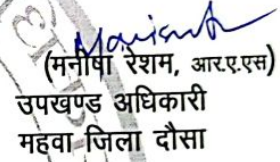 (मनीषा रेशम, आर.ए.एस)
उपखण्ड अधिकारी
महवा जिला दौसा